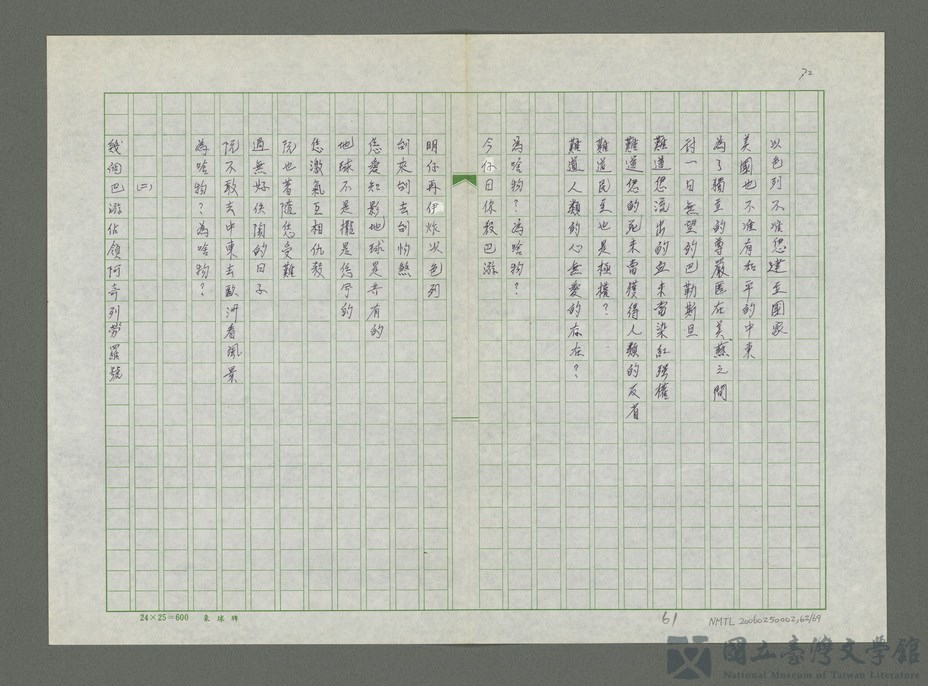 72
以色列不准您建立國家
美國也不准有和平的中東
為了獨立的尊嚴匿在美蘇之間
討一日無望的巴勒斯旦
難道您流出的血未當染紅強權
難道您的死未當獲得人類的反省
難道民主也是極權?
難道人類的心無愛的存在?
為啥物?為啥物?
今仔日你殺巴游
明仔再伊炸以色列
刣來刣去刣怕煞
您愛知影地球是共有的
地球不是攏是您兮的
您激氣互相仇殺
阮也著隨您受難
過無好佚陶的日子
阮不敢去中東去歐洲看風景
為啥物?為啥物?
(二)
幾個巴游佔領阿奇列勞羅號
24×25=600 象球牌
61
NMTL 20060250002,62/69
國立臺灣文學館
National Museum of Taiwan Literature